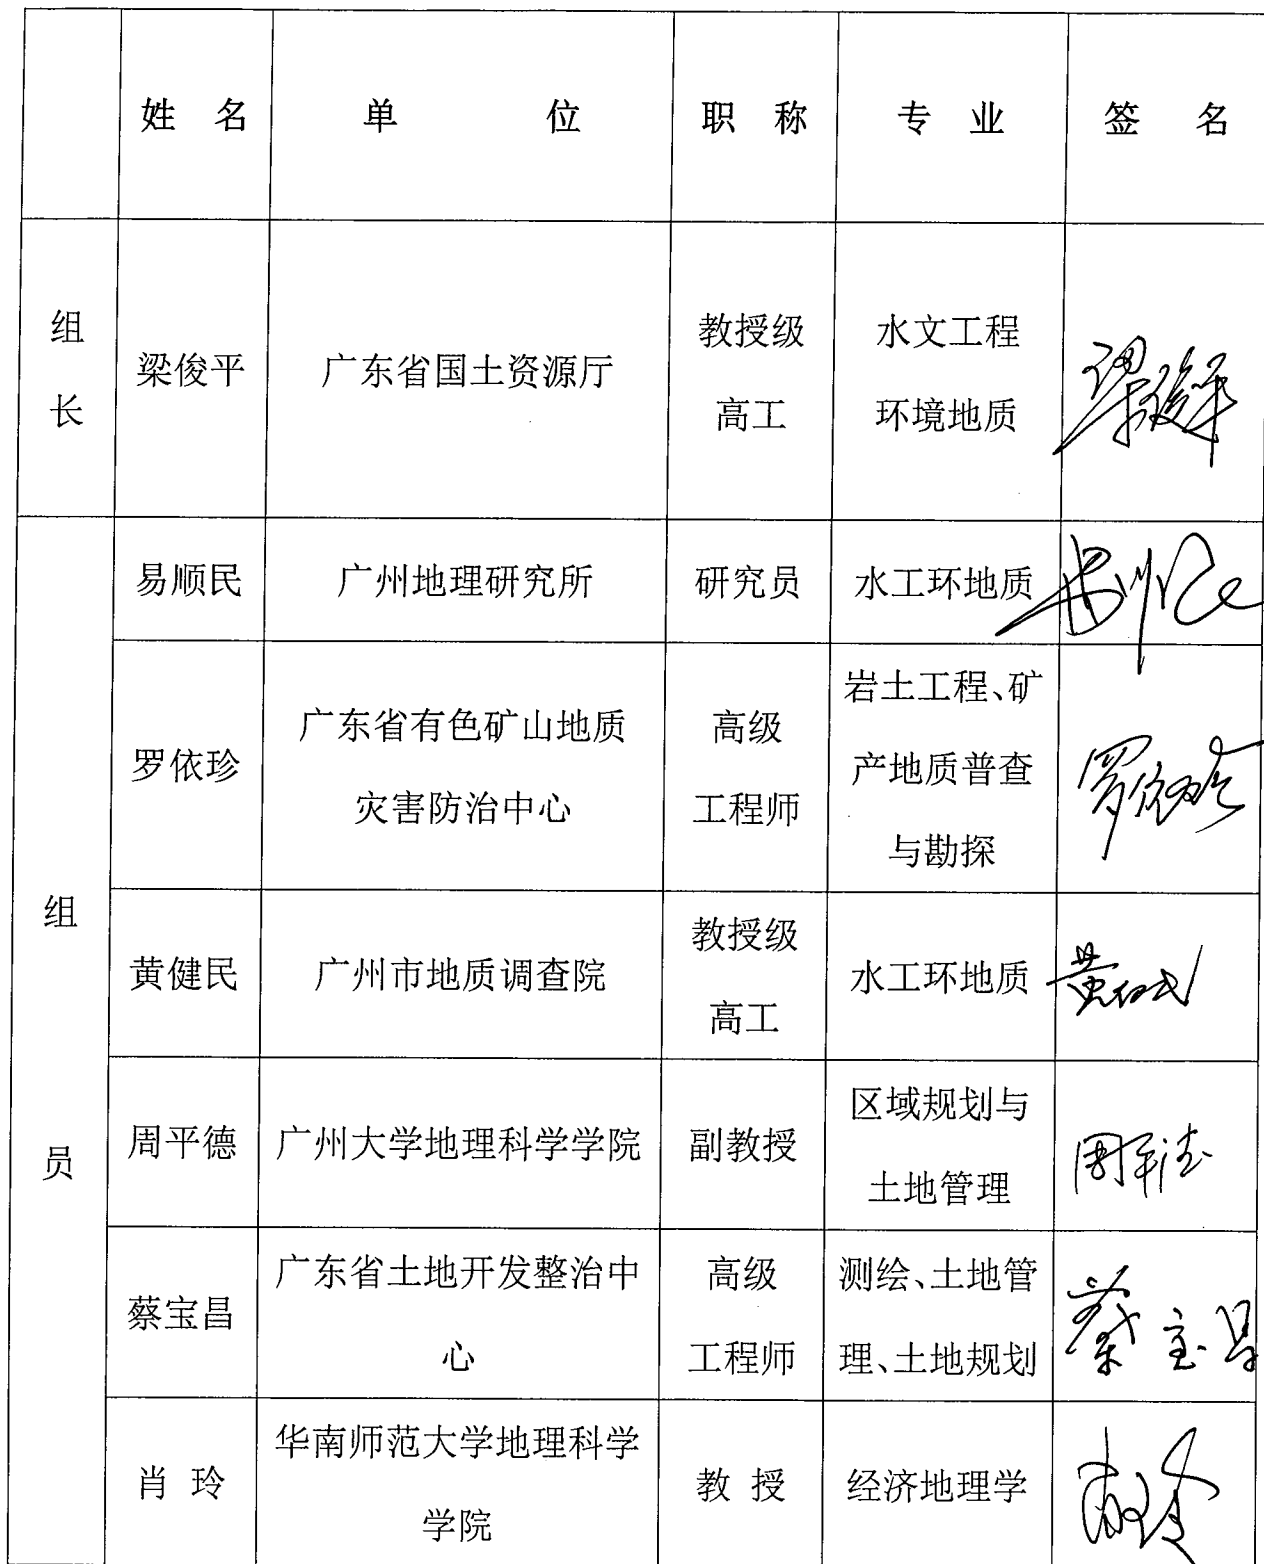 姓 名 单 位 职 称 专 业 签 名
组
长
梁俊平
广东省国土资源厅
教授级
高工
水文工程
环境地质
梁俊平
组
员
易顺民
广州地理研究所
研究员
水工环地质
罗依珍
广东省有色矿山地质
灾害防治中心
高级
工程师
岩土工程、矿
产地质普查
与勘探
罗依珍
黄健民
广州市地质调查院
教授级
高工
水工环地质
黄健民
周平德
广州大学地理科学学院
副教授
区域规划与
土地管理
周平德
蔡宝昌
广东省土地开发整治中
心
高级
工程师
测绘、土地管
理、土地规划
蔡宝昌
肖 玲
华南师范大学地理科学
学院
教 授
经济地理学
肖玲